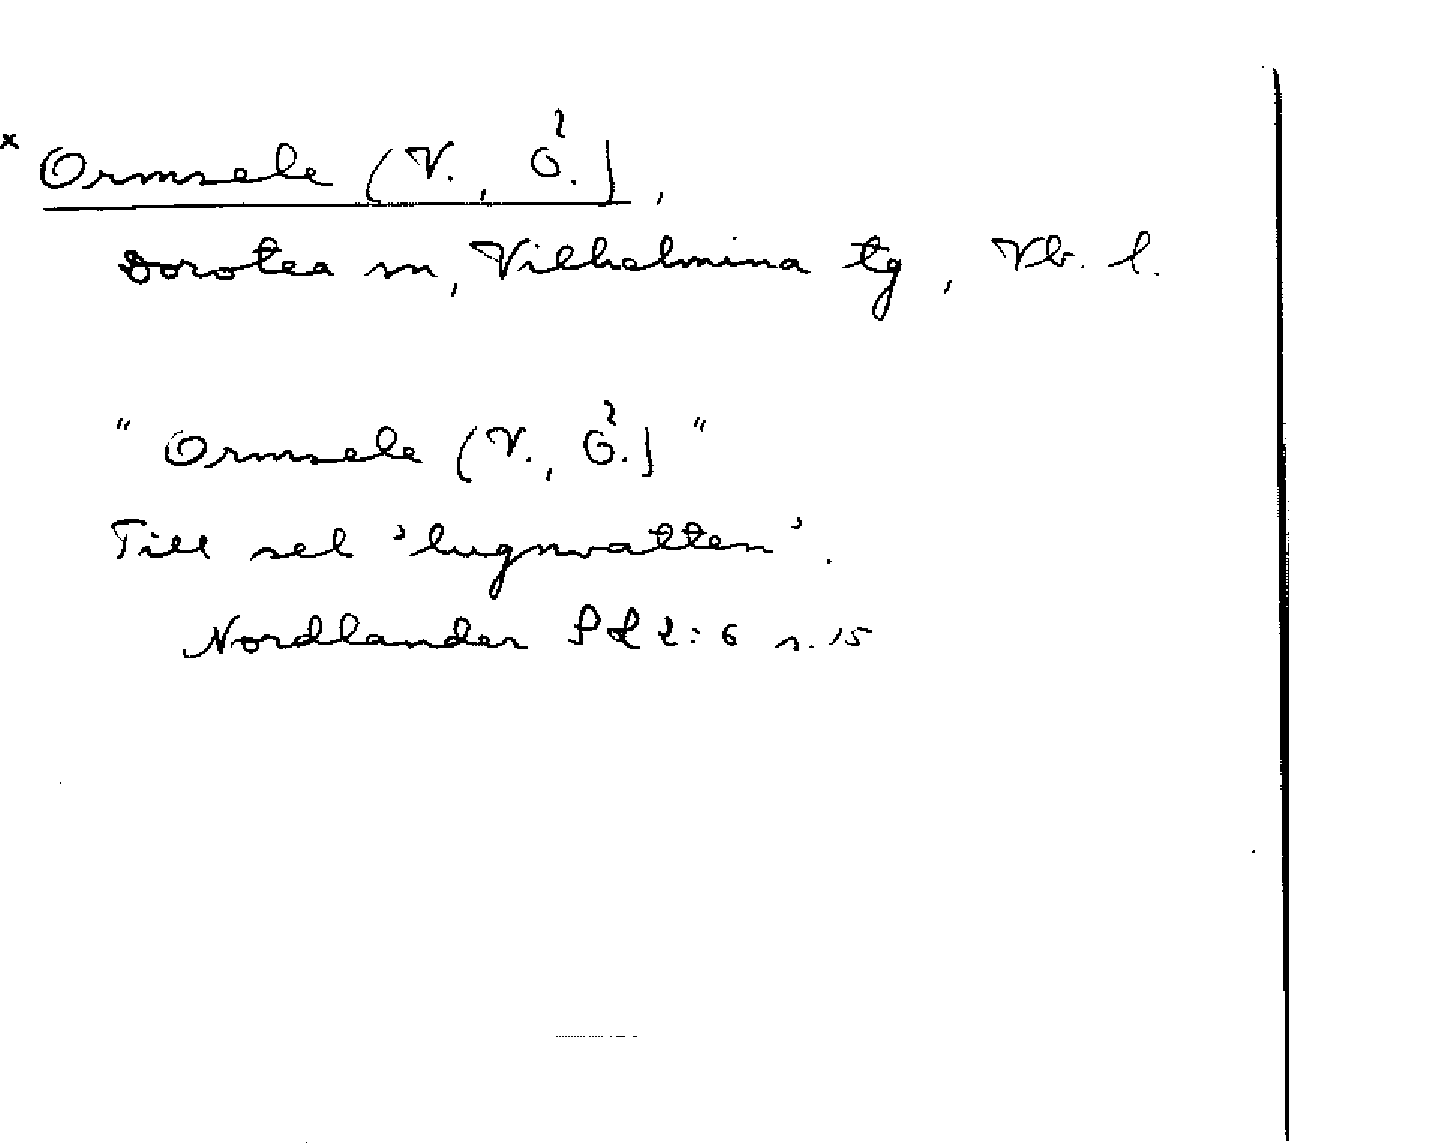 * Ormsele (V., Ö.),
Dorotea sn, Vilhelmina tg, Vb. l.
"Ormsele (V., Ö.)"
Till sel 'lugnvatten'.
Nordlander 2:6 s. 15